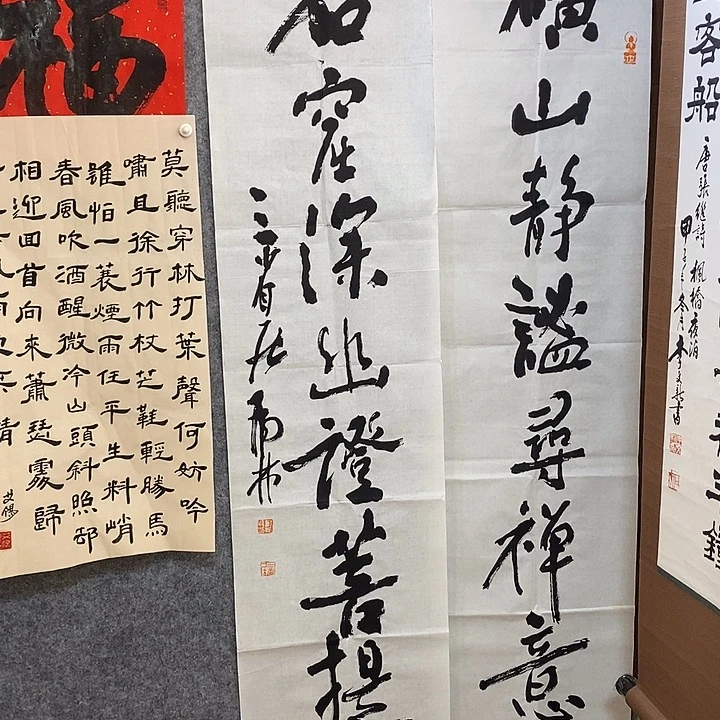 客船
唐張繼詩 楓橋夜泊
礦山靜謐尋禪意
窟深幽證菩提
三省居
福
莫聽穿林打葉聲何妨吟
嘯且徐行竹杖芒鞋輕勝馬
誰怕一蓑煙雨任平生料峭
春風吹酒醒微冷山頭斜照却
相迎回首向來蕭瑟處歸